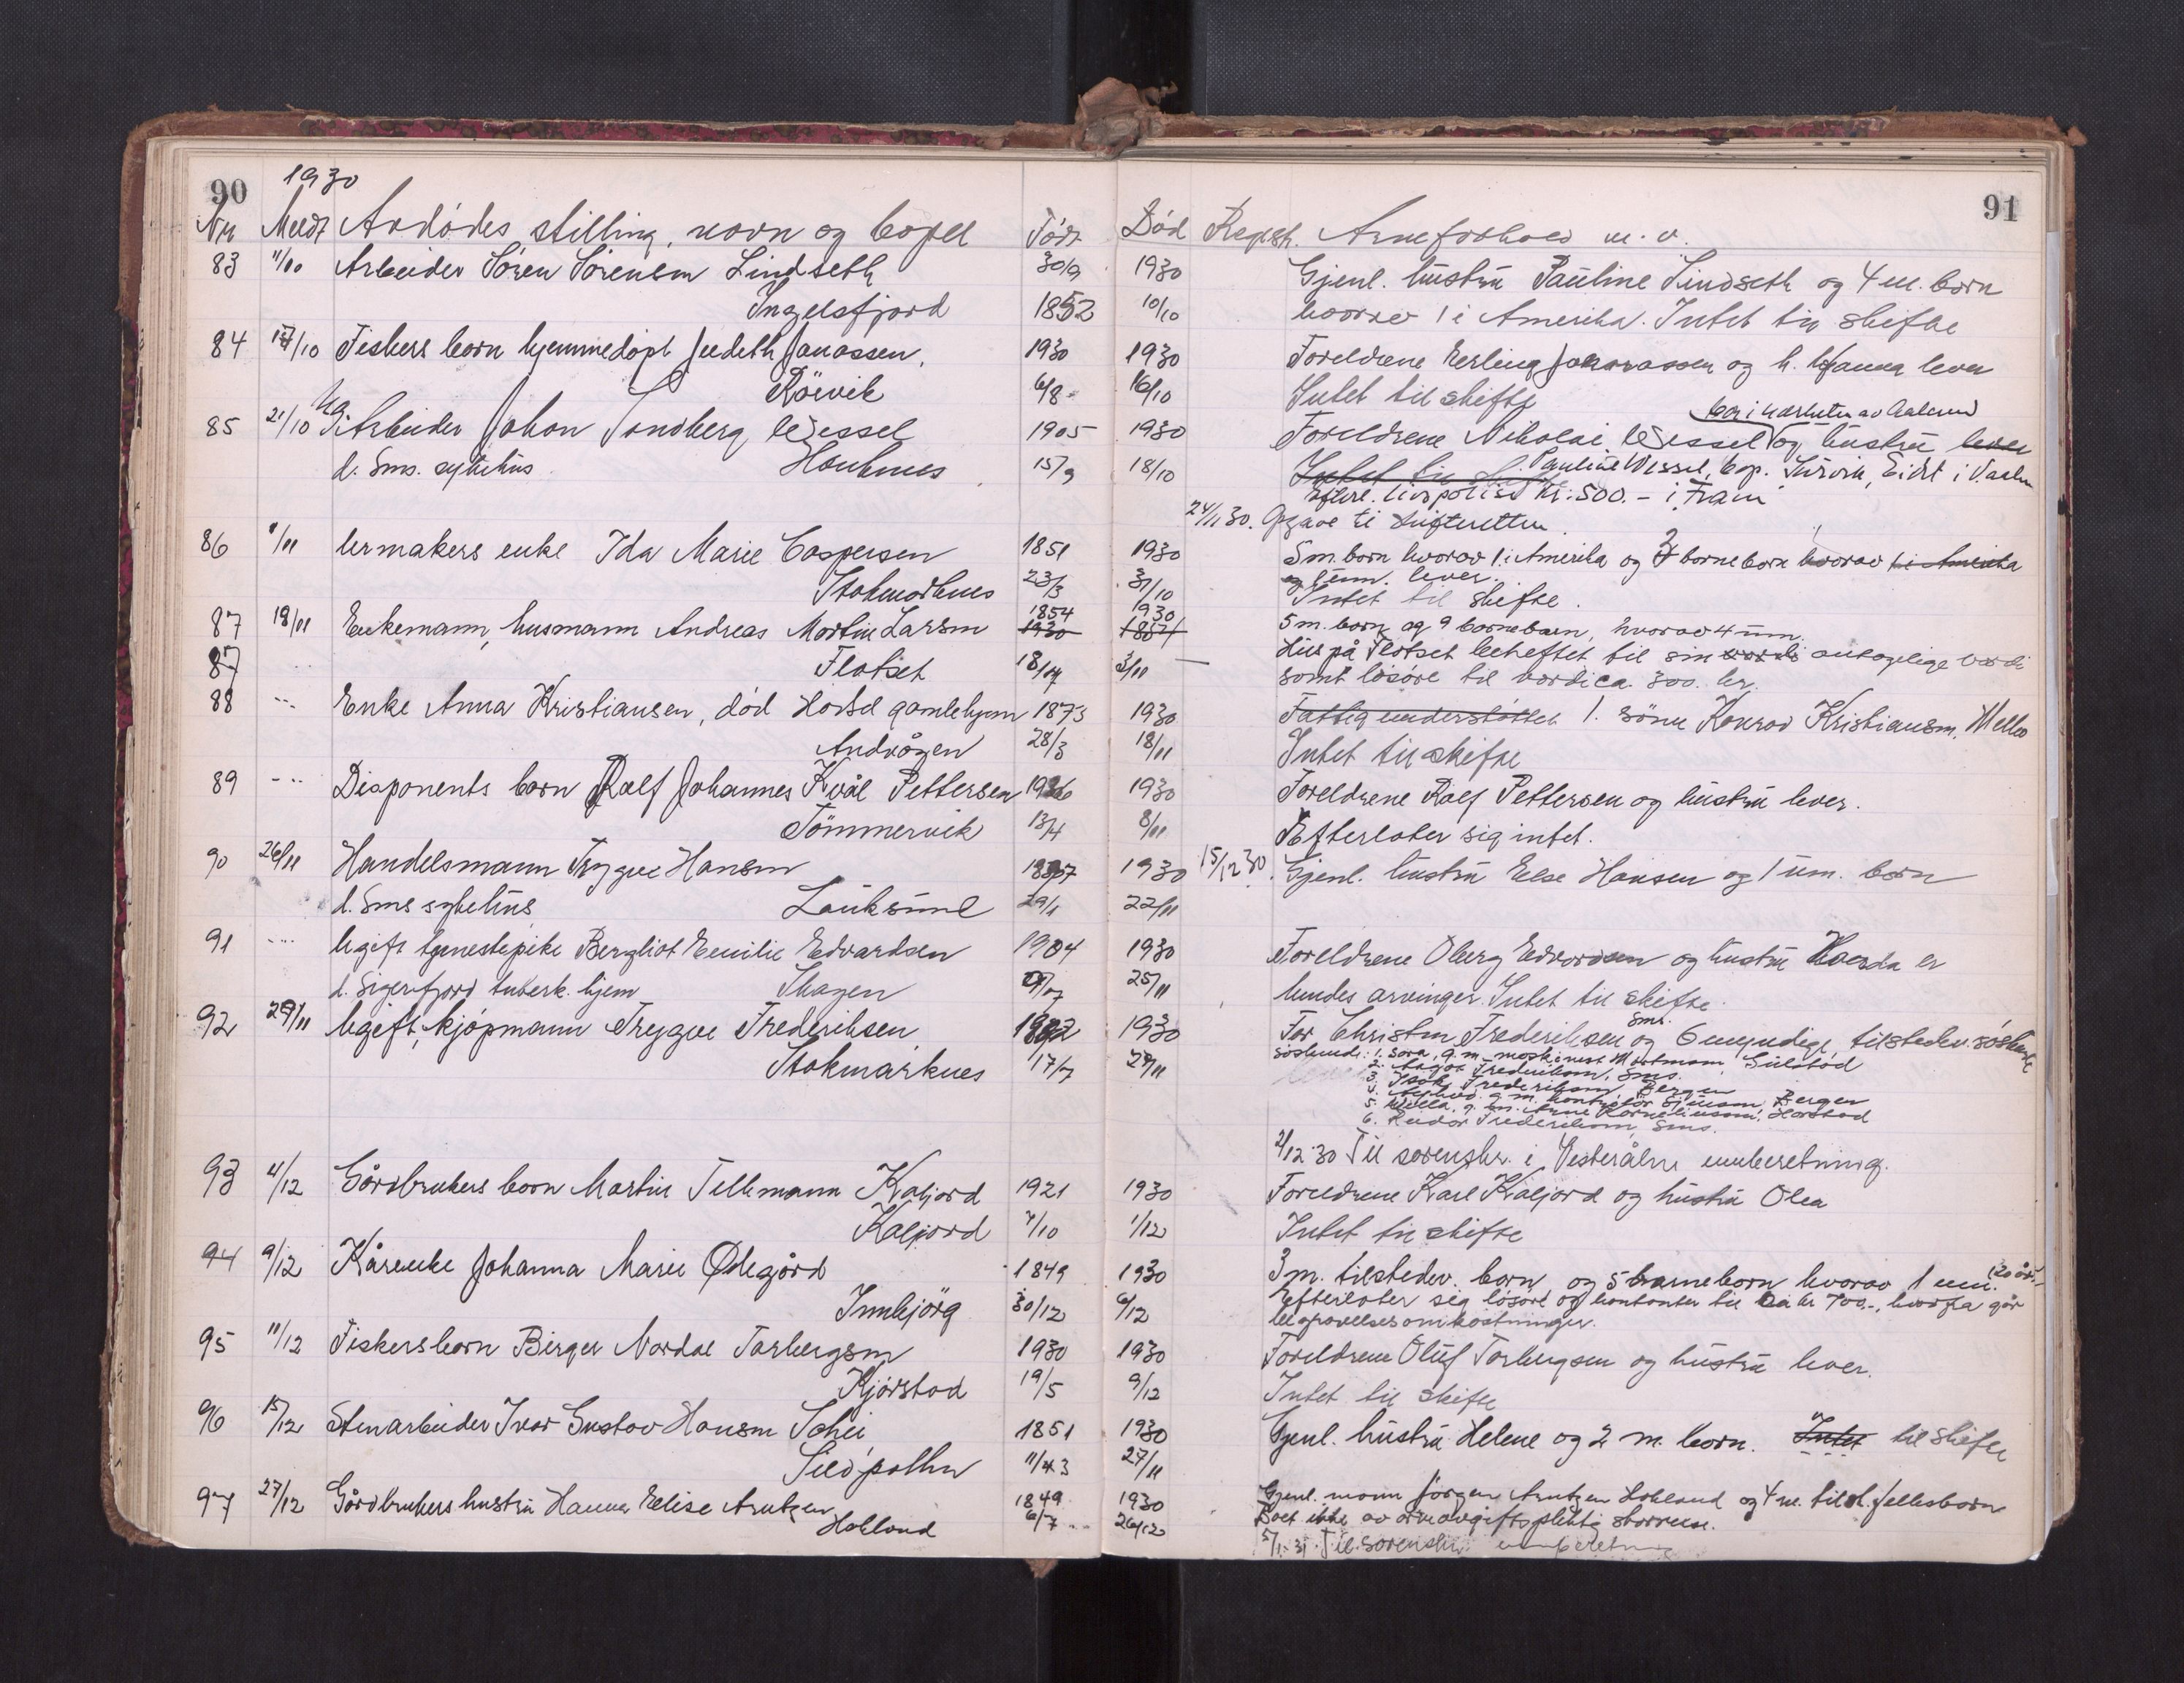 90
1930
91
Nr Meldt Avdødes stilling, navn og bopel Født Død Registr. Arveforhold m. v.
83 11/10 Arbeider Sören Sörensen Lindseth 30/9 1930 Gjenl. hustru Pauline Lindseth og 4 m. barn
Ingelsfjord 1852 10/10 hvorav 1 i Amerika. Intet til skifte
84 17/10 Fiskers barn hjemmedöpt Judeth Janassen, 1930 1930 Foreldrene Erling Johanassen og h. Hanna lever
Rörvik 6/8 16/10 Intet til skifte
bor i nærheten av Aalesund
85 21/10 Ug. Arbeider Johan Sandberg Wessel 1905 1930 Foreldrene Nikolai Wessel og hustru lever
d. Sms. sykehus. Hauknes 15/9 18/10 Intet til sk. Pauline Wessel, bop. Eidet i
Efterl. livspolise kr. 500.- i Fram
24/11 30. Opgave til skifteretten
86 1/11 Urmakers enke Ida Marie Caspersen 1851 1930 5 m. barn hvorav 1 i Amerika og 3 barnebarn hvorav 1 i Amerika
Stokmarknes 23/3 31/10 og 1 um. lever.
Intet til skifte.
87 18/11 Enkemann, husmann Andreas Martin Larsen 1854 1930 1930 1854 5 m. barn og 9 barnebarn, hvorav 4 um.
87 Flatset 18/ 3/11 — Hus på Flatset beheftet til sin verdi antagelige verdi
samt lösöre til verdi ca. 300. kr.
88 -"- Enke Anna Kristiansen, död Hadsel gamlehjem 1873 1930 Fattigunderstöttet 1. sönn Konrad Kristiansen, Melbo
Andvågen 28/3 18/11 Intet til skifte
89 -"- Disponents barn Rolf Johannes Kvål Pettersen 1926 1930 Foreldrene Rolf Pettersen og hustru lever.
Tömmervik 13/4 8/11 Efterlater sig intet.
90 26/11 Handelsmann Trygve Hansen 1897 1930 15/12 30. Gjenl. hustru Else Hansen og 1 um. barn
d. Sms sykehus Lauksund 29/1 22/11
91 -"- Ugift tjenestepike Bergliot Emilie Edvardsen 1904 1930 Foreldrene Oberg Edvardsen og hustru er
d. Sigerfjord tuberk. hjem Skagen 25/11 hendes arvinger. Intet til skifte.
92 29/11 Ugift, kjöpmann Trygve Frederiksen 1930 Far Christen Frederiksen Sms. og 6 myndige, tilstedev. söskende
Stokmarknes 17/7 29/11 söskende: 1. Sara, g. m. maskinist Mortensen, Gulstad
2. Frederiksen, Sms.
3. Isak Frederiksen Bergen
4. g. m. kontrolör Simonsen, Bergen
5. g. m. Arne Korneliussen, Harstad
6. Reidar Frederiksen, Sms.
2/12 30 Til sorenskr. i Vesterålen innberetning.
93 4/12 Gårdbrukers barn Martin Tellmann Kaljord 1921 1930 Foreldrene Karl Kaljord og hustru Olea
Kaljord 7/10 1/12 Intet til skifte
94 9/12 Kårenke Johanna Marie Ödegård 1849 1930 3 m. tilstedev. barn og 5 barnebarn hvorav 1 um. (20 år).
Innbjörg 30/12 6/12 Efterlater sig lösöre og kontanter til ca kr 700.-, hvorfra går
begravelsesomkostninger.
95 11/12 Fiskers barn Birger Nordal Torbergsen 1930 1930 Foreldrene Oluf Torbergsen og hustru lever.
Kjörstad 19/5 9/12 Intet til skifte
96 15/12 Stenarbeider Ivar Gustav Hansen Schei 1851 1930 Gjenl. hustru Helene og 2 m. barn. Intet til skifte
Sildpollen 11/3 27/11
97 27/12 Gårdbrukers hustru Hanna Elise Arntzen 1849 1930 Gjenl. mann Jörgen Arntzen Hokland og 4 m. tilst. fellesbarn
Hokland 6/7 26/12 Boet ikke av arveavgiftspliktig störrelse.
5/1. 31. Til sorenskr. innberetning